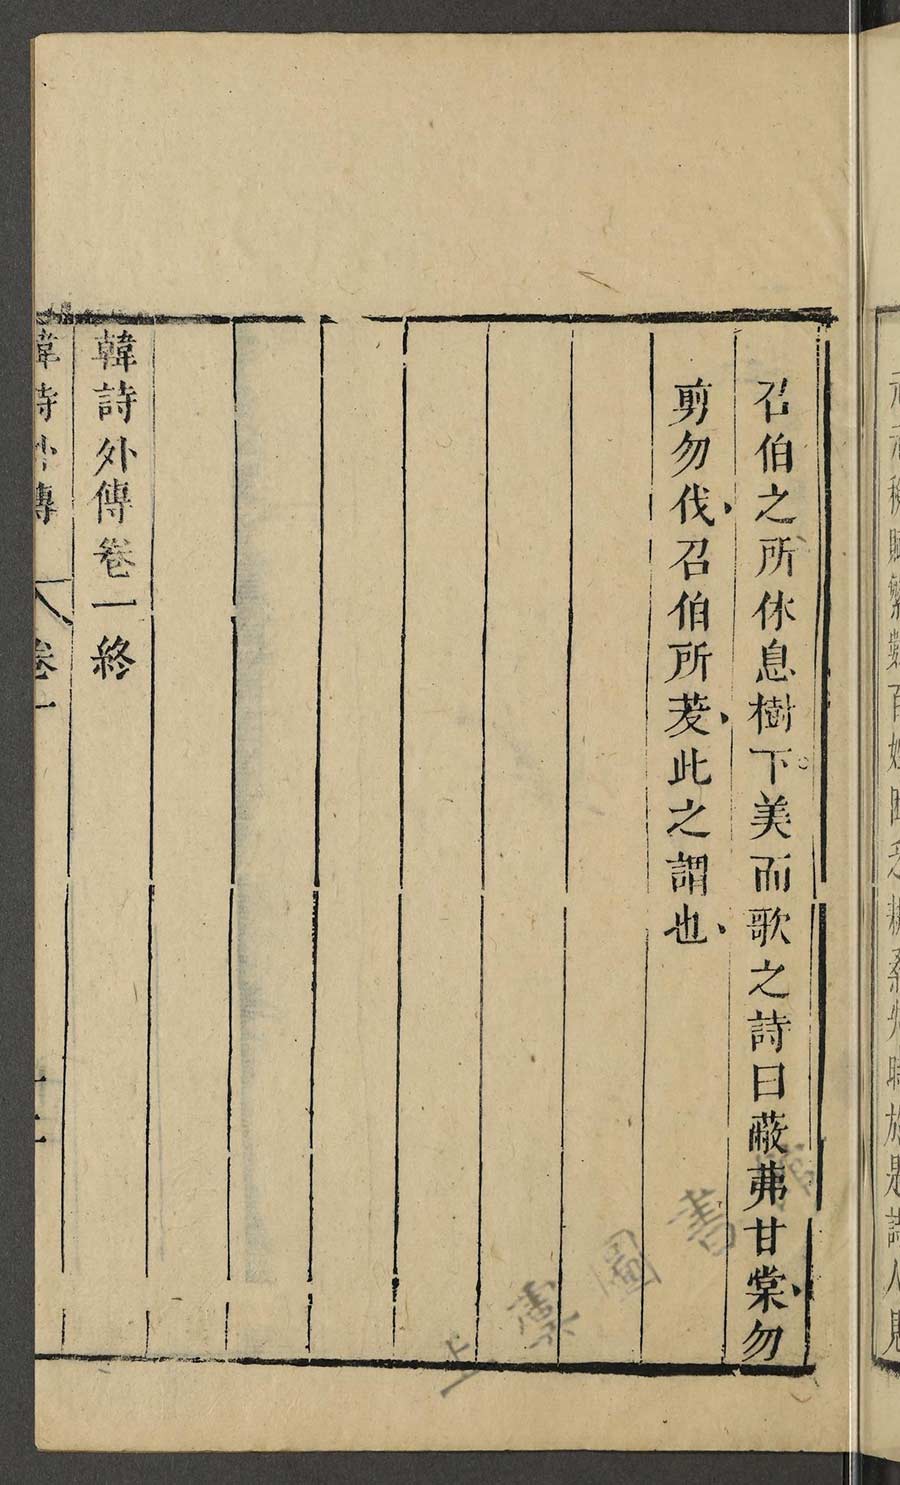 召伯之所休息樹下美而歌之詩曰蔽茀甘棠勿
剪勿伐召伯所茇此之謂也
韓詩外傳卷一終
韓詩外傳 卷一
上虞圖書館